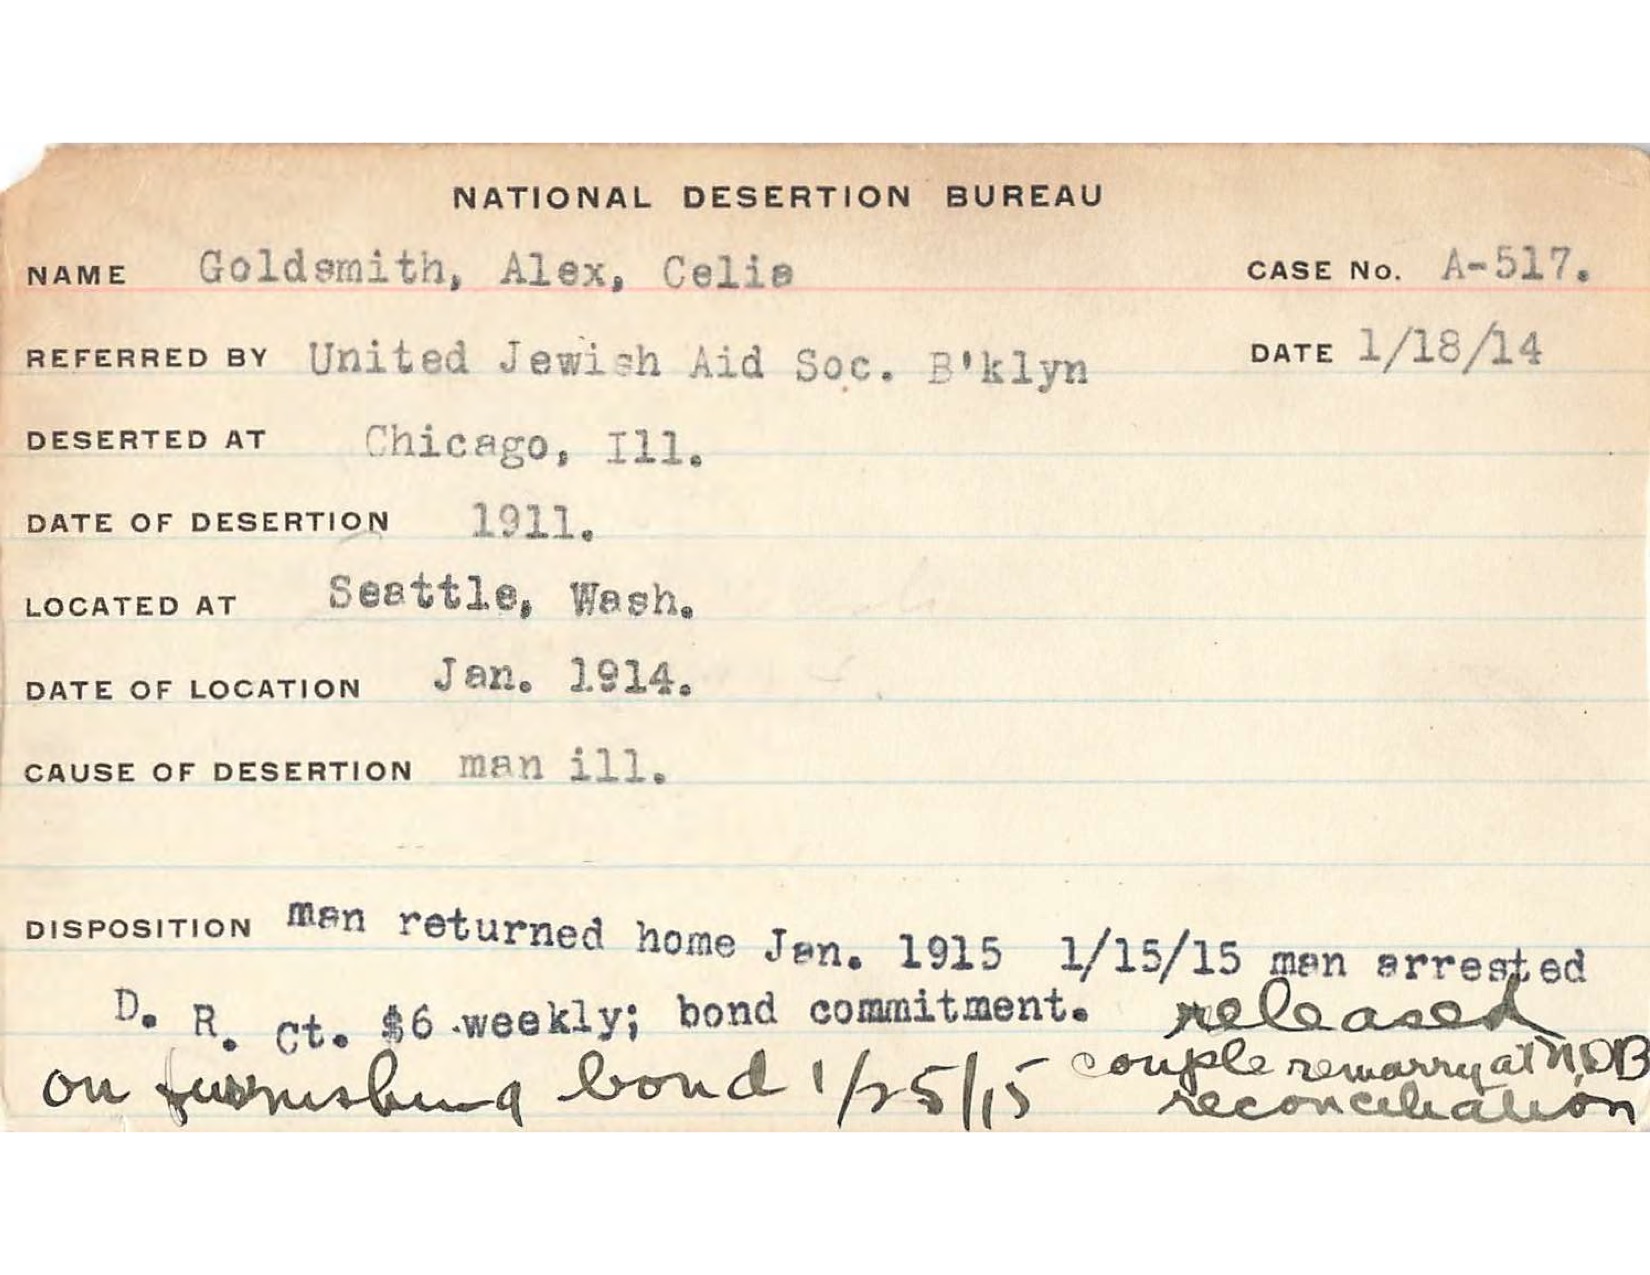 NATIONAL DESERTION BUREAU
NAME Goldsmith, Alex, Celia CASE No. A-517.
REFERRED BY United Jewish Aid Soc. B'klyn DATE 1/18/14
DESERTED AT Chicago, Ill.
DATE OF DESERTION 1911.
LOCATED AT Seattle, Wash.
DATE OF LOCATION Jan. 1914.
CAUSE OF DESERTION man ill.
DISPOSITION man returned home Jan. 1915 1/15/15 man arrested
D. R. Ct. $6 weekly; bond commitment. released
on furnishing bond 1/25/15 couple remarry at N.D.B
reconciliation